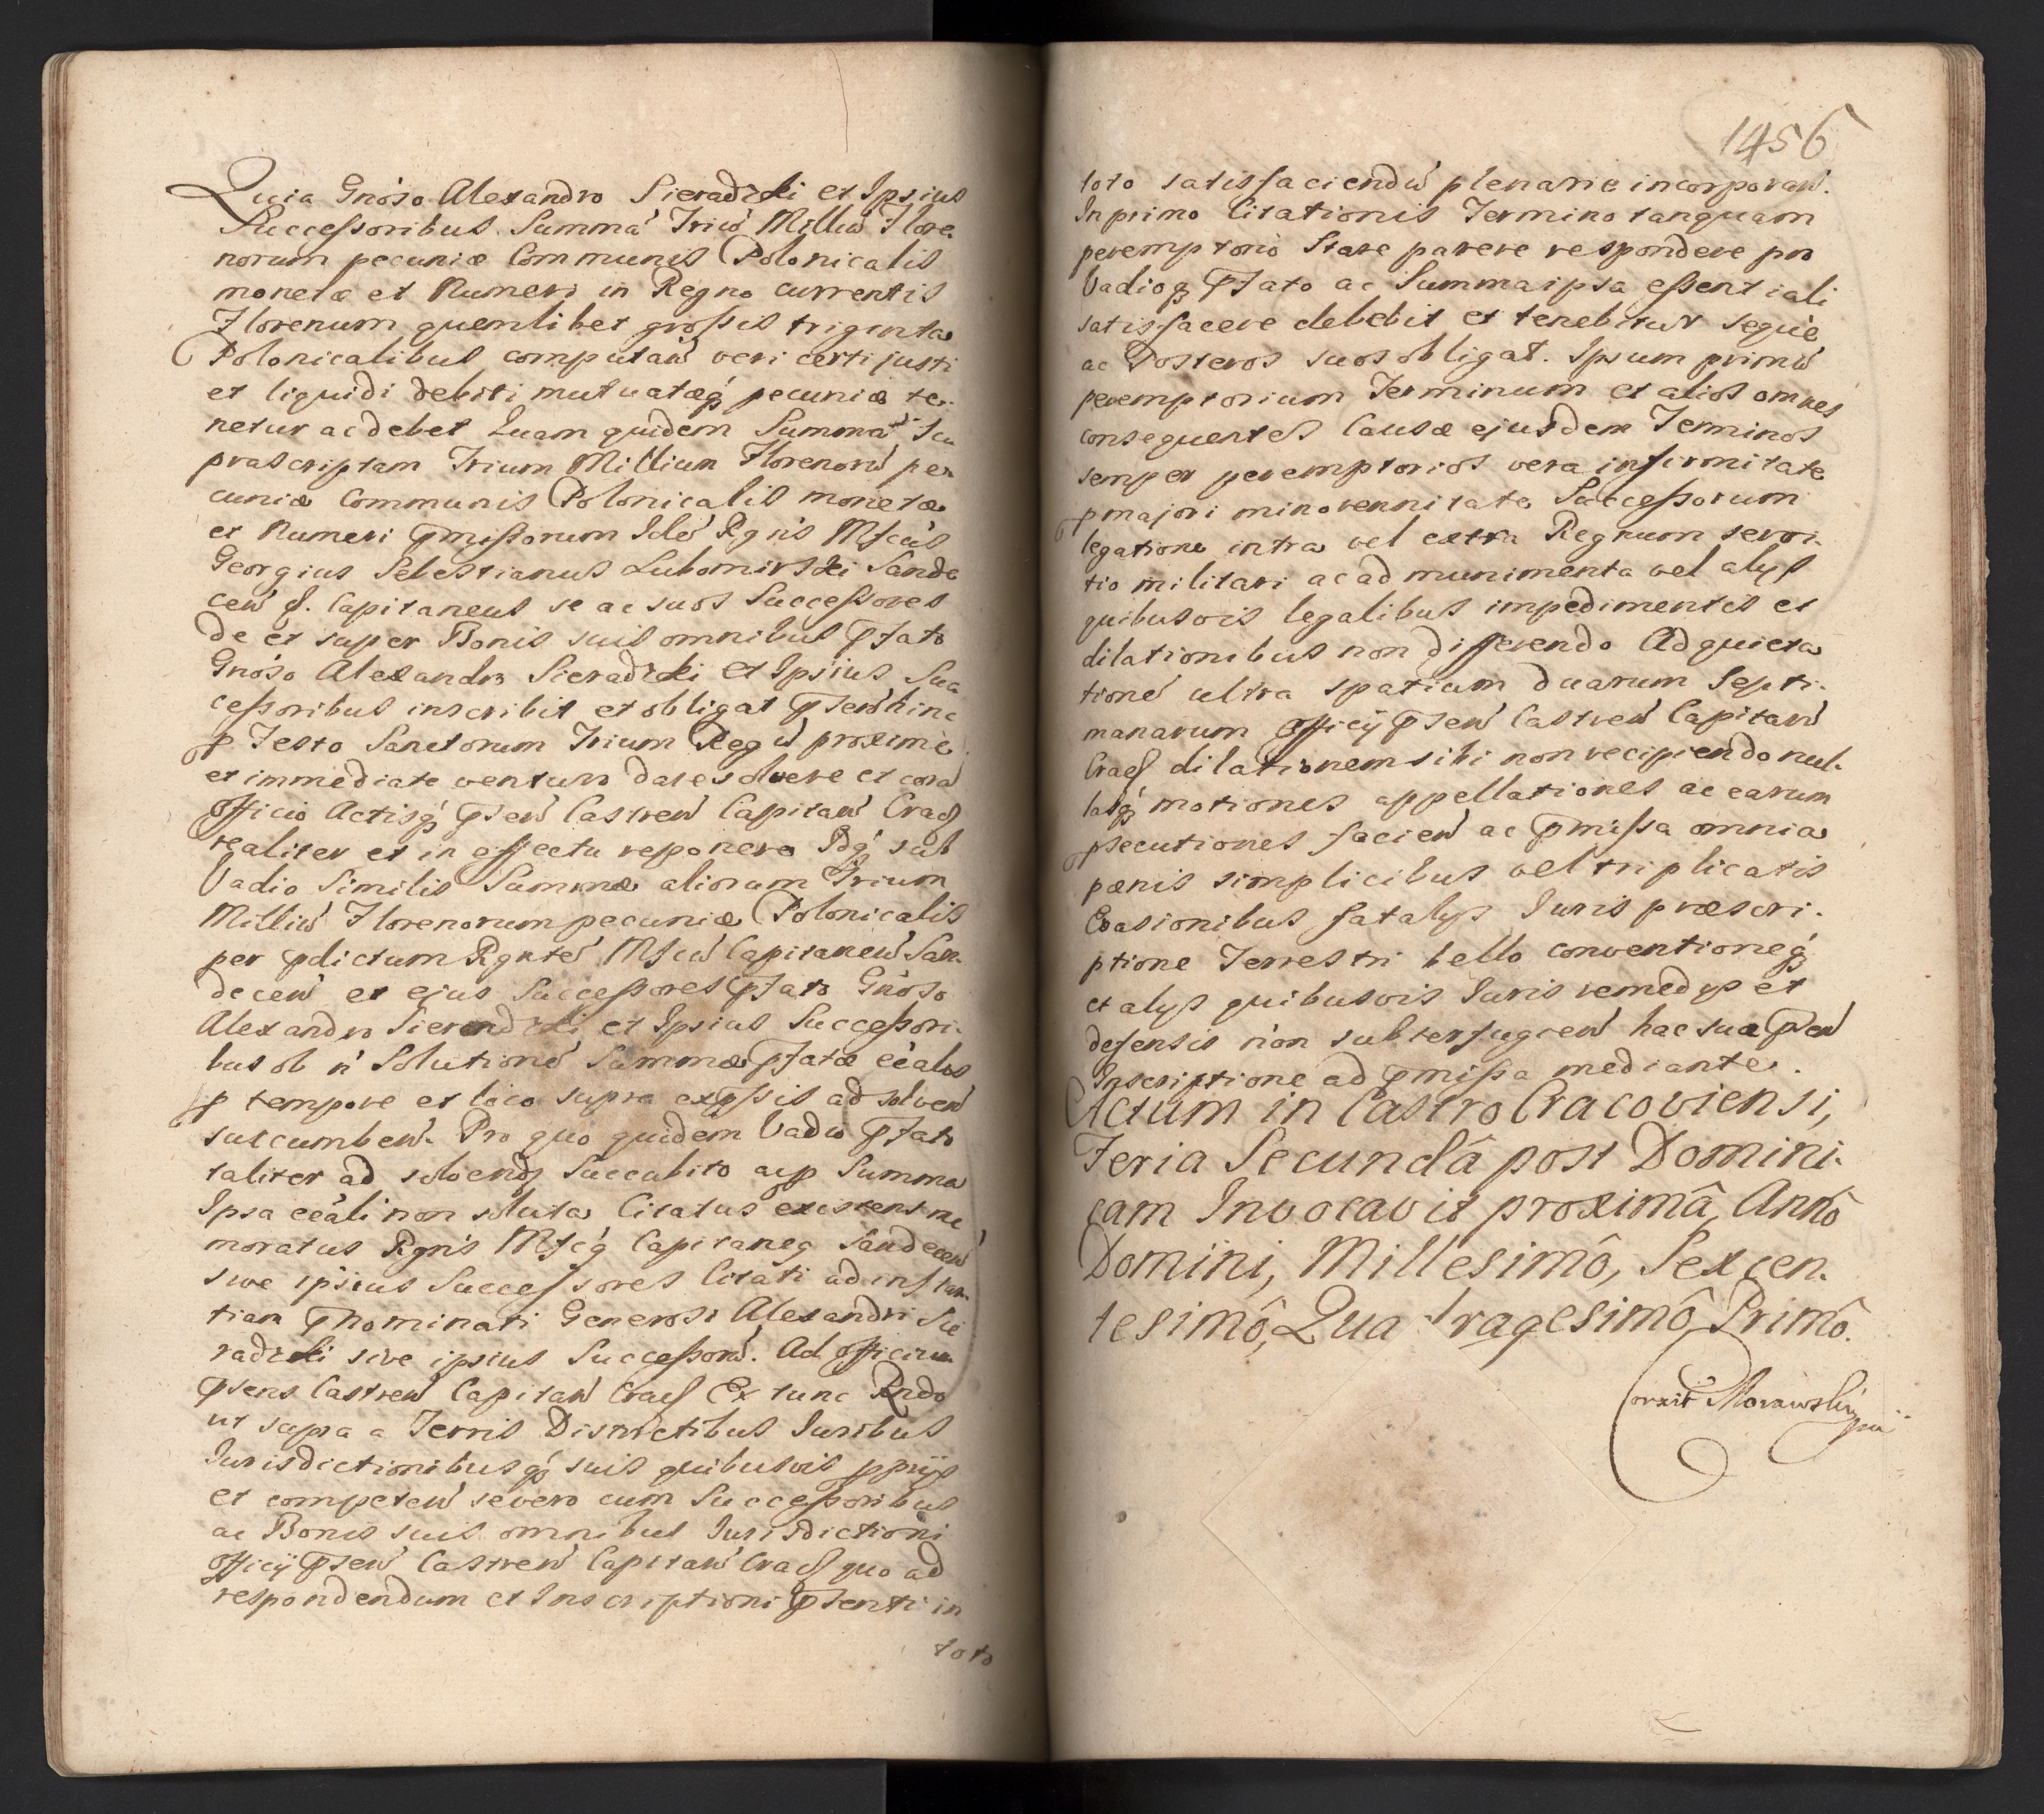 Quia Gnóso Alexandro Sieradzki et Ipsius
Successoribus. Summá Triũ Milliũ Flore-
norum pecuniæ Communis Polonicalis
monetæ et Numeri in Regno currentis
Florenum quemlibet grossis triginta
Polonicalibus computań veri certi justi
et liquidi debiti mutuatæq́ pecuniæ te-
netur ac debet Quam quidem Summá seu
præscriptam Trium Millium Florenorũ pe-
cuniæ Communis Polonicalis monetæ
et Numeri p̄missorum Mfcus
Georgius Sebestianus Lubomirski Sande
ceń Capitaneus se ac suos Successores
de et super Bonis suis omnibus p̄fato
Gnóso Alexandro Sieradzki et Ipsius Suc
cessoribus inscribit et obligat hinc
p Festo Sanctorum Trium Regũ proximè
et immediate venturo dare solvere et corá
Officio Actisq́ p̄seń Castreń Capitań Crac
realiter et in effectu reponere Idq́ sub
Vadio Similis Summæ aliorum Trium
Milliũ Florenorum pecuniæ Polonicalis
per p̄dictum Mfcũ Capitaneũ San-
deceń et ejus Successores p̄fato Gnóso
Alexandro Sieradzki et Ipsius Successori-
bus ob ń Solutioné Summæ p̄fatæ eéalis
p tempore et loco supra exp̄ssis ad solveń
succumbeń. Pro quo quidem Vadio p̄fato
taliter ad solvend Succubito acp Summa
Ipsa eéali non soluta Citatus existens
moratus Mfcq́ Capitaneq Sandeceń
sive ipsius Successores Citati ad instan-
tiam p̄nominati Generosi Alexandri Sie
radzki sive ipsius Successorũ. Ad Officium
p̄sens Castreń Capitań Crac Ex tunc
ut supra a Terris Districtibus Iuribus
Iurisdictionibusq́ suis quibusvis pprijs
et competeń se vero cum Successoribus
ac Bonis suis omnibus Iurisdictioni
Officij p̄seń Castreń Capitań Crac quo ad
respondendum et Inscriptioni p̄senti in
toto
1456
toto satisfaciendũ plenarie incorporań.
In primo Citationis Termino tanquam
peremptorio Stare parere respondere pro
Vadioq p̄fato ac Summa ipsa essentiali
satisfacere debebit et tenebitur seque
ac Posteros suos obligat. Ipsum primũ
peremptorium Terminum et alios omnes
consequentes Causæ ejusdem Terminos
semper peremptorios vera infirmitate
p majori minorennitate Successorum
legatione intra vel extra Regnum servi-
tio militari ac ad munimenta vel alijs
quibusvis legalibus impedimentis et
dilationibus non differendo Ad quieta
tioné ultra spatium duarum Septi-
manarum Officij p̄seń Castreń Capitań
Crac dilationem sibi non recipiendo nul-
lasq́ motiones appellationes ac earum
psecutiones facień ac p̄missa omnia
pænis simplicibus vel triplicatis
Evasionibus fatalijs Iuris præscri-
ptione Terrestri bello conventioneq́
et alijs quibusvis Iuris remedijs et
defensis non subterfugień hac sua p̄seń
Inscriptione ad p̄missa mediante.
Actum in Castro Cracoviensi,
Feria Secundâ post Domini-
cam Invocavit proximâ, Annô
Domini, Millesimô, Sexcen-
tesimô, Quadragesimô Primô.
Corxit Morawski